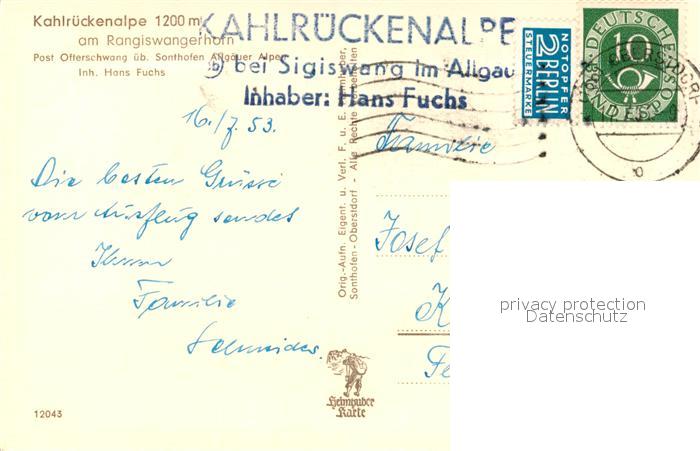 Kahlrückenalpe 1200 m
am Rangiswangerhorn
Post Ofterschwang üb. Sonthofen Allgäuer Alpen
Inh. Hans Fuchs
KAHLRÜCKENALPE
bei Sigiswang im Allgäu
Inhaber: Hans Fuchs
16./7. 53.
Die besten Grüsse
vom Ausflug sendet
Ihnen
Familie
Schneider.
Orig.-Aufn. Eigent. u. Verl. F. u. E. Heimhuber,
Sonthofen-Oberstdorf - Alle Rechte vorbehalten
NOTOPFER
2 BERLIN
STEUERMARKE
DEUTSCHE BUNDESPOST
10
Familie
Josef
K
Fe
privacy protection
Datenschutz
Heimhuber
Karte
12043